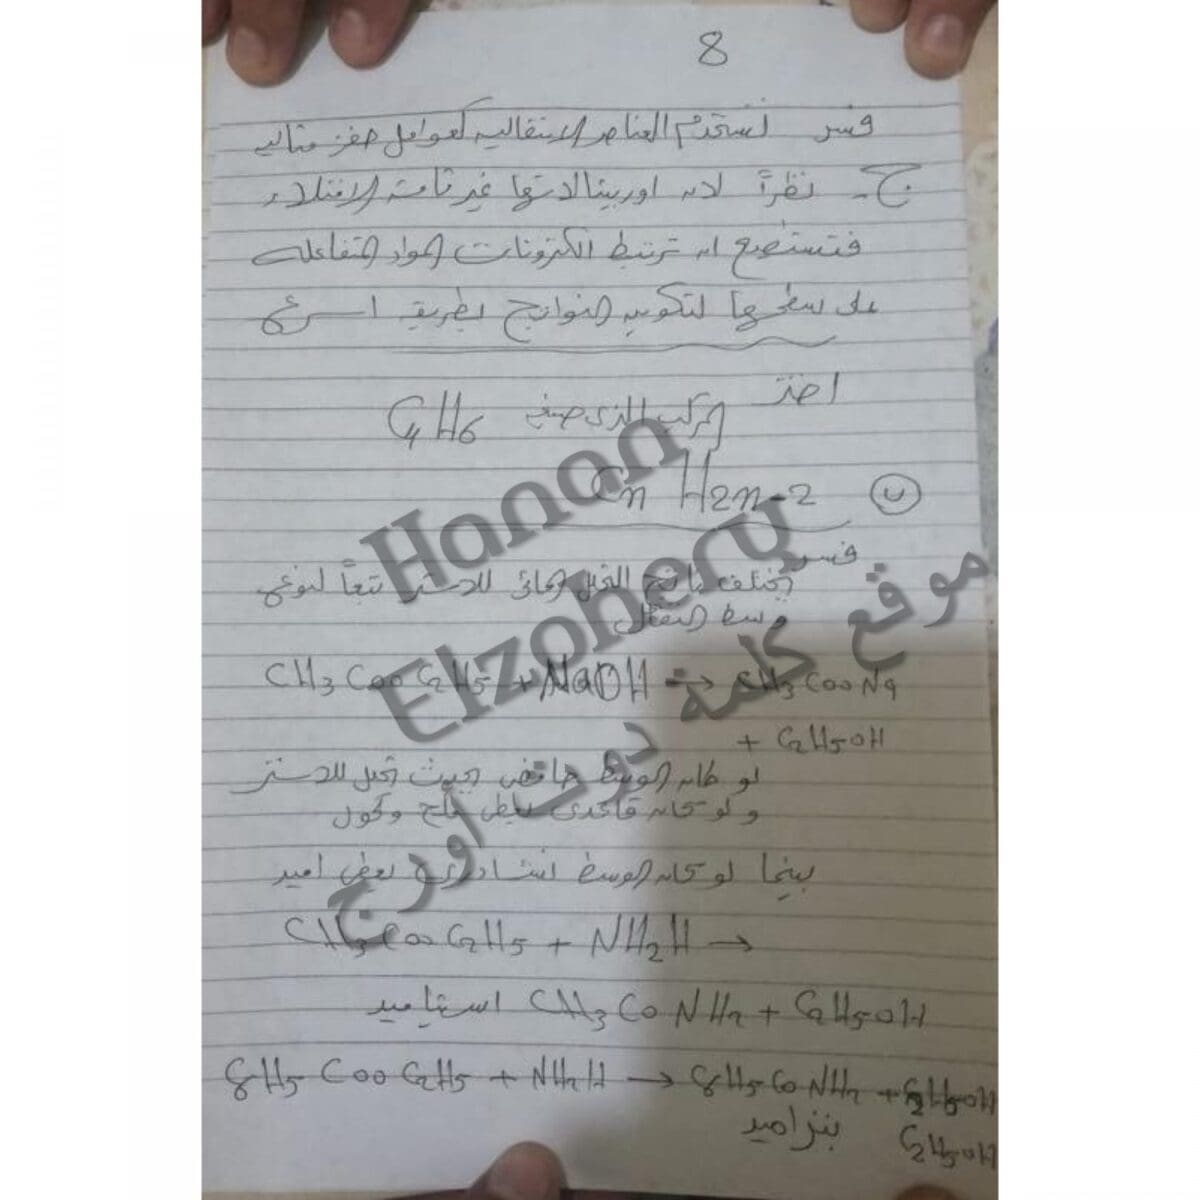 8
فسر تستخدم العناصر الانتقالية كعوامل حفز مثالية
ج- نظراً لان اوربيتالاتها غير تامة الامتلاء
فتستطيع ان ترتبط الكترونات المواد المتفاعلة
على سطحها لتكوين النواتج بطريقة اسرع
اختر
المركب الذى صيغته C4H6
ب CnH2n-2
فسر
يختلف ناتج التحلل المائى للاستر تبعاً لنوعى
وسط التفاعل
CH3COOC2H5 + NaOH → CH3COONa
+ C2H5OH
لو كان الوسط حامضى بحيث تحلل للاستر
ولو كان قاعدى يعطى ملح وكحول
بينما لو كان الوسط نشادرى يعطى اميد
CH3COOC2H5 + NH2H →
استياميد CH3CONH2 + C2H5OH
C6H5COOC2H5 + NH2H → C6H5CONH2 + C2H5OH
بنزاميد C2H5OH
Hanan
Elzohery
موقع كلمة دوت اورج